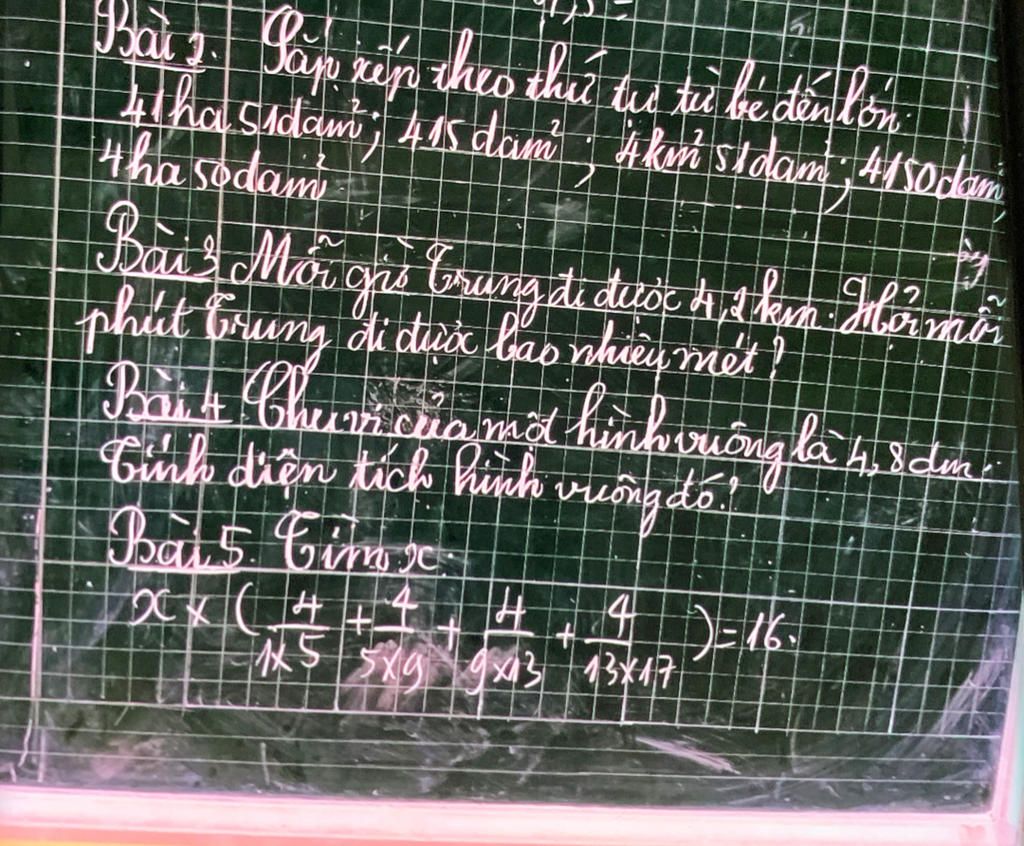 Bài 2. Sắp xếp theo thứ tự từ bé đến lớn:
41ha 51dam²; 415 dam²; 4km² 51dam²; 4150dam²;
4ha 50dam²
Bài 3 Mỗi giờ Trung đi được 4,2 km. Hỏi mỗi
phút Trung đi được bao nhiêu mét?
Bài 4 Chu vi của một hình vuông là 4,8 dm.
Tính diện tích hình vuông đó?
Bài 5. Tìm x:
x × ( 4/1×5 + 4/5×9 + 4/9×13 + 4/13×17 ) = 16.